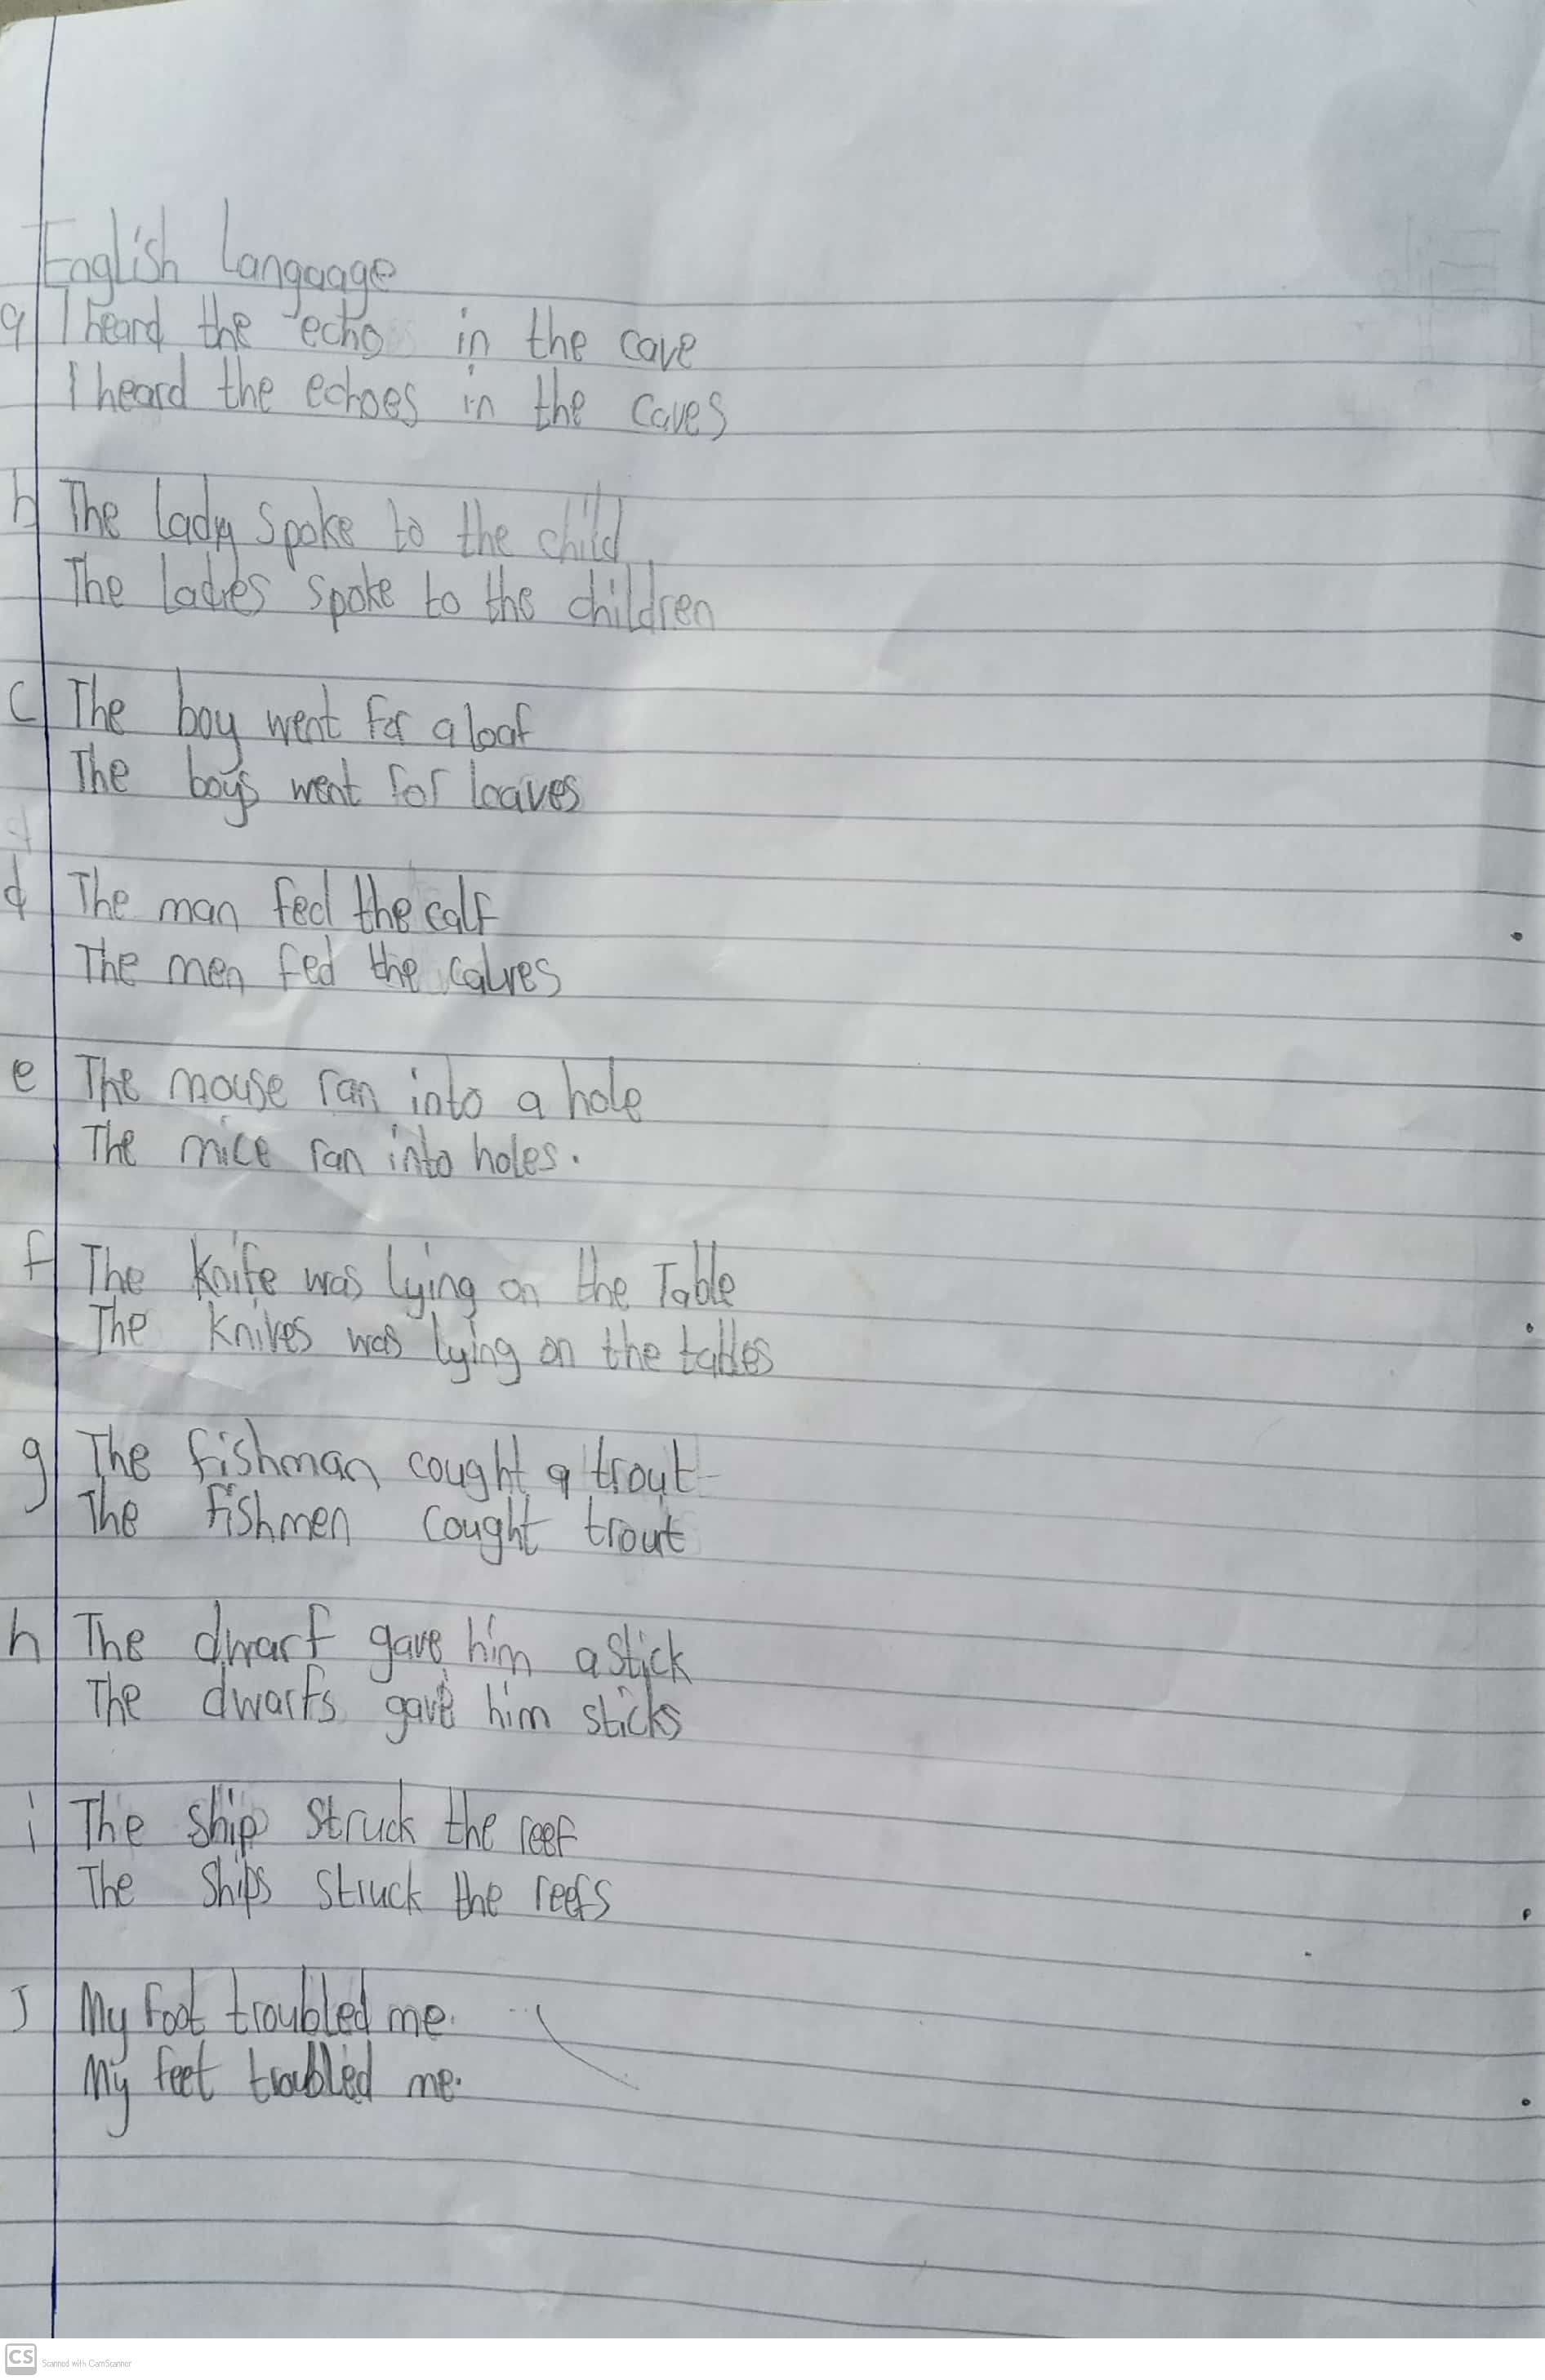 English Langauge
a I heard the echo in the cave
I heard the echoes in the caves
b The lady spoke to the child
The ladies spoke to the children
c The boy went for a loaf
The boys went for loaves
d
d The man fed the calf
The men fed the calves
e The mouse ran into a hole
The mice ran into holes.
f The knife was lying on the Table
The knives was lying on the tables
g The fishman cought a trout
The fishmen cought trout
h The dwarf gave him a stick
The dwarfs gave him sticks
i The ship struck the reef
The ships struck the reefs
J My foot troubled me.
My feet troubled me.
CS Scanned with CamScanner